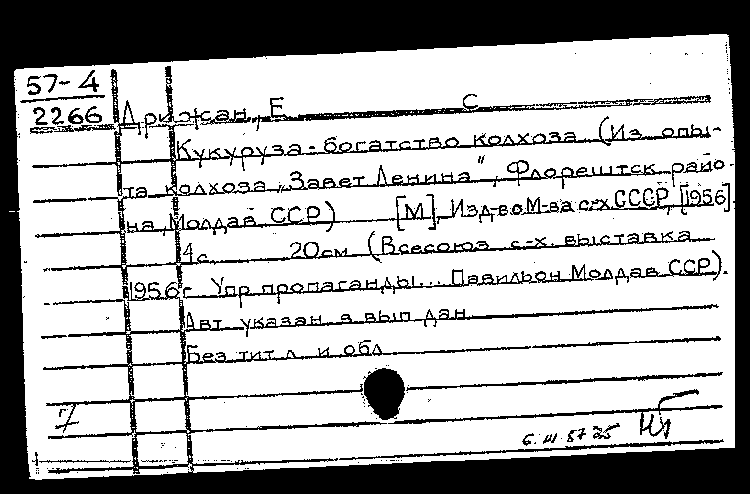 57-4
2266
Дрижан, Е С
Кукуруза - богатство колхоза (Из опы-
та колхоза „Завет Ленина“, Флорештск райо-
на, Молдав ССР) [М], Изд-во М-ва с-х СССР, [1956].
4с. 20см (Всесоюз с-х. выставка
1956г Упр пропаганды... Павильон Молдав ССР).
Авт указан в вып дан
Без тит л и обл
7
6. III 57 25